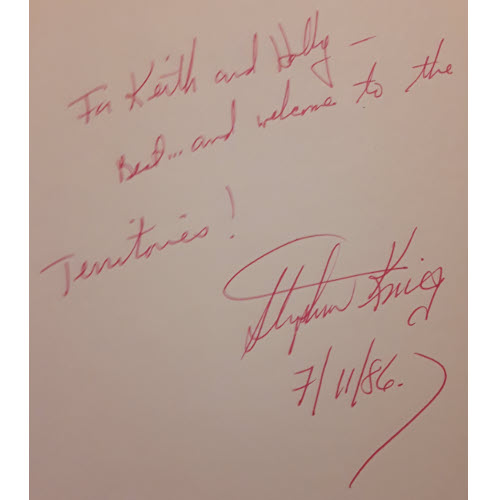 For Keith and Holly —
Best... and welcome to the
Territories!
Stephen King
7/11/86.